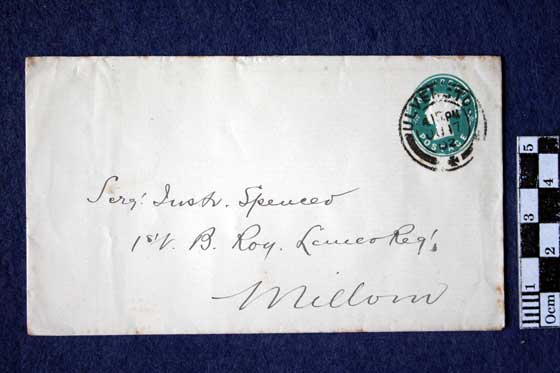 ULVERSTON
4 15 PM
POSTAGE
Sergt. Instr. Spencer
1st V. B. Roy. Lanc Regt.
Millom
5
4
3
2
1
0cm